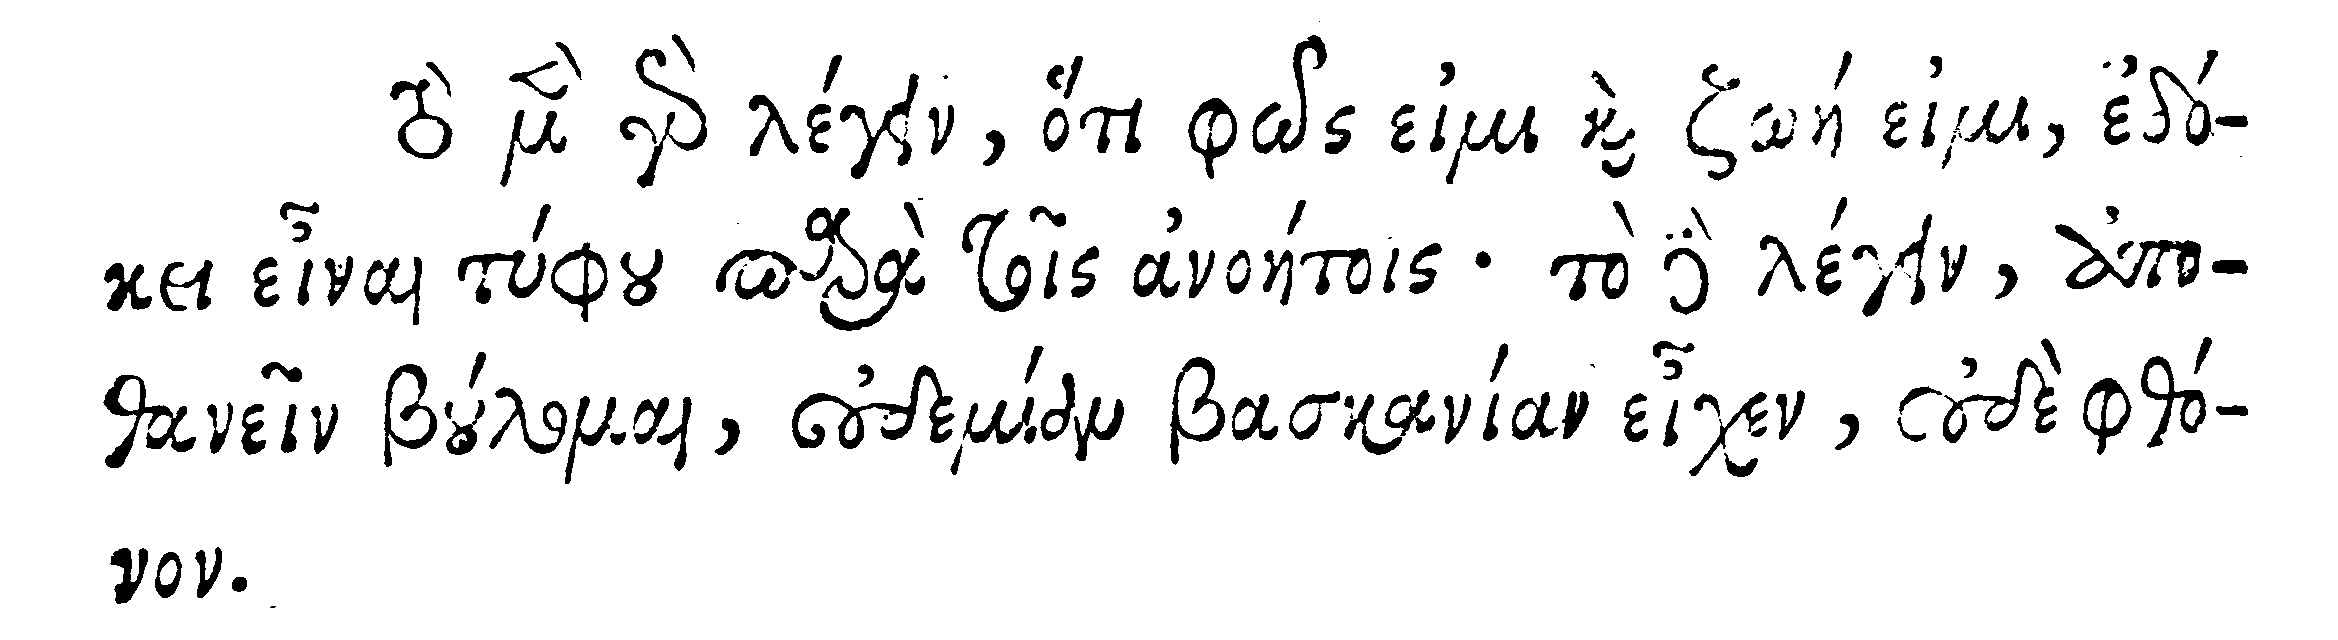 τὸ μὲν γὰρ λέγειν, ὅτι φῶς εἰμι καὶ ζωή εἰμι, ἐδό-
κει εἶναι τύφου παρὰ τοῖς ἀνοήτοις· τὸ δὲ λέγειν, ἀπο-
θανεῖν βούλομαι, οὐδεμίαν βασκανίαν εἶχεν, οὐδὲ φθό-
νον.